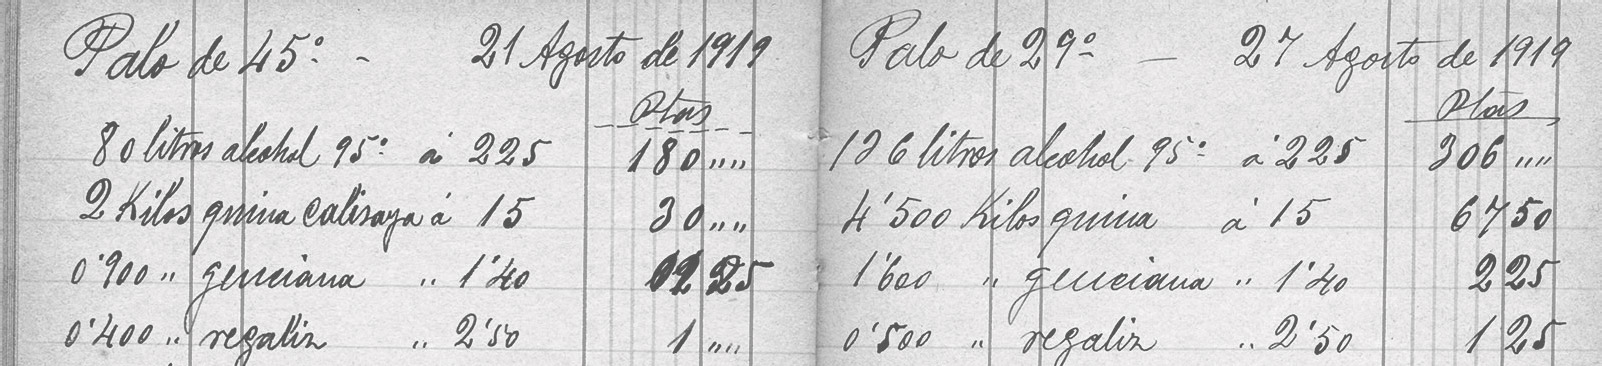 Palo de 45° - 21 Agosto de 1919
Ptas
80 litros alcohol 95° á 225 180 „„
2 Kilos quina calisaya á 15 30 „„
0'900 „ genciana „ 1'40 1 25
0'400 „ regaliz „ 2'50 1 „„
Palo de 29° — 27 Agosto de 1919
Ptas
136 litros alcohol 95° á 225 306 „„
4'500 Kilos quina á 15 67 50
1'600 „ genciana „ 1'40 2 25
0'500 „ regaliz „ 2'50 1 25